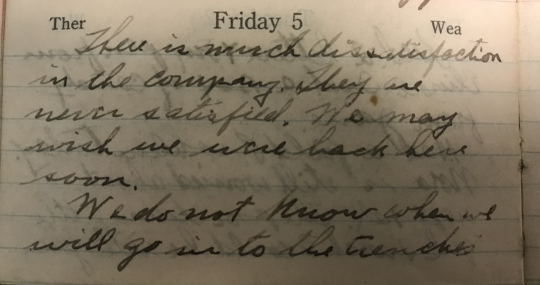 Ther Friday 5 Wea
There is much dissatisfaction
in the company. They are
never satisfied. We may
wish we were back here
soon.
We do not know when we
will go in to the trenches